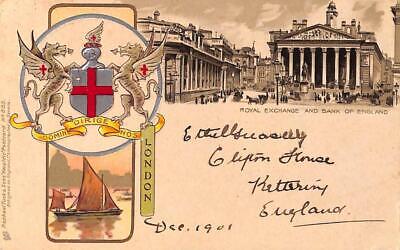 DOMINE DIRIGE NOS
LONDON
ROYAL EXCHANGE AND BANK OF ENGLAND
Raphael Tuck & Sons' "Heraldic" Postcard
Clifton House
Kettering
England.
Dec. 1901